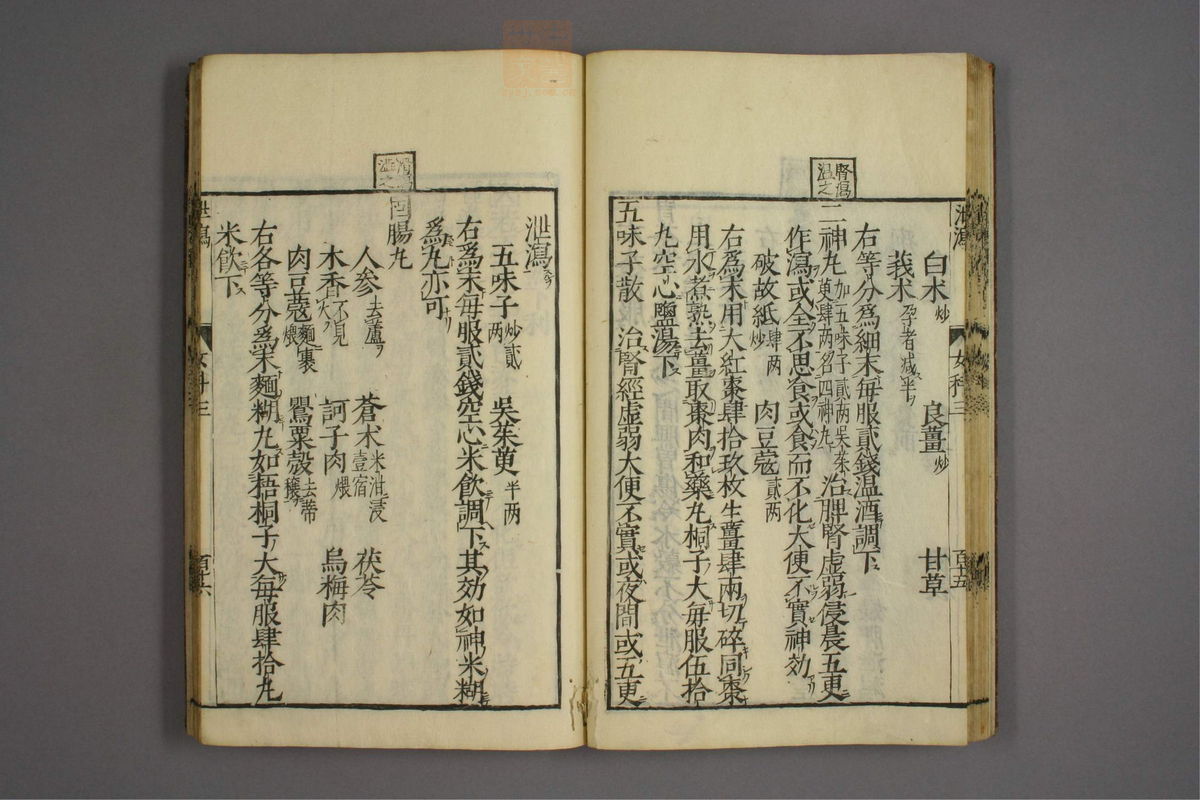 泄瀉 女科三 百十五
白朮炒 良薑炒 甘草
莪朮孕者减半
右等分爲細末每服貳錢温酒調下
腎瀉
温之
二神丸加五味子貳两吳茱萸肆两名四神丸治脾腎虛弱侵晨五更
作瀉或全不思食或食而不化大便不實神効
破故紙肆两炒 肉豆蔻貳两
右爲末用大紅棗肆拾玖枚生薑肆兩切碎同棗
用水煮熟去薑取棗肉和藥丸桐子大每服伍拾
丸空心鹽湯下
五味子散 治腎經虛弱大便不實或夜間或五更
泄瀉
五味子炒貳两 吳茱萸半两
右爲末每服貳錢空心米飲調下其効如神米糊
爲丸亦可
滑
泄之
固腸丸
人參去蘆 蒼朮米泔浸壹宿 茯苓
木香不見火 訶子肉煨 烏梅肉
肉豆蔻麵裹煨 罌粟殼去蒂穰
右各等分爲末麵糊丸如梧桐子大每服肆拾丸
米飲下
泄瀉 女科三 百十六